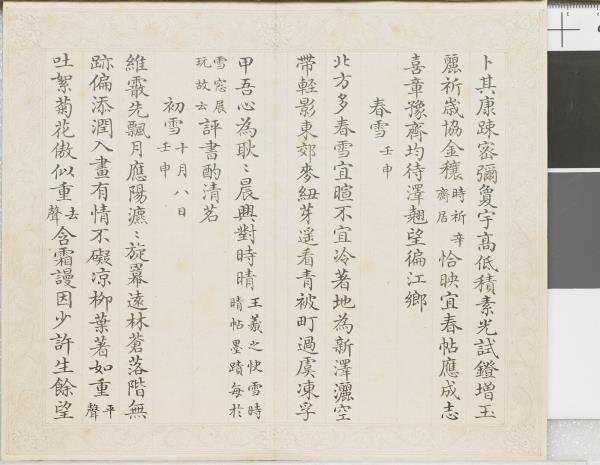 卜其康踈宻彌夐宇髙低積素光試鐙增玉
麗祈歲協金穰時祈辛齋居恰映宜春帖應成志
喜章豫齊均待澤翹望徧江鄉
春雪壬申
北方多春雪宜暄不宜冷著地為新澤灑空
帶輕影東郊麥紐芽遙看青被町過虞凍孚
甲吾心為耿〻晨興對時晴王羲之快雪時晴帖墨蹟每於
雪窓展玩故云評書酌清茗
初雪十月八日壬申
維霰先飄月應陽瀌〻旋羃遠林蒼落階無
跡偏添潤入畫有情不礙凉栁葉著如重平聲
吐絮菊花傲似重去聲含霜謾因少許生餘望